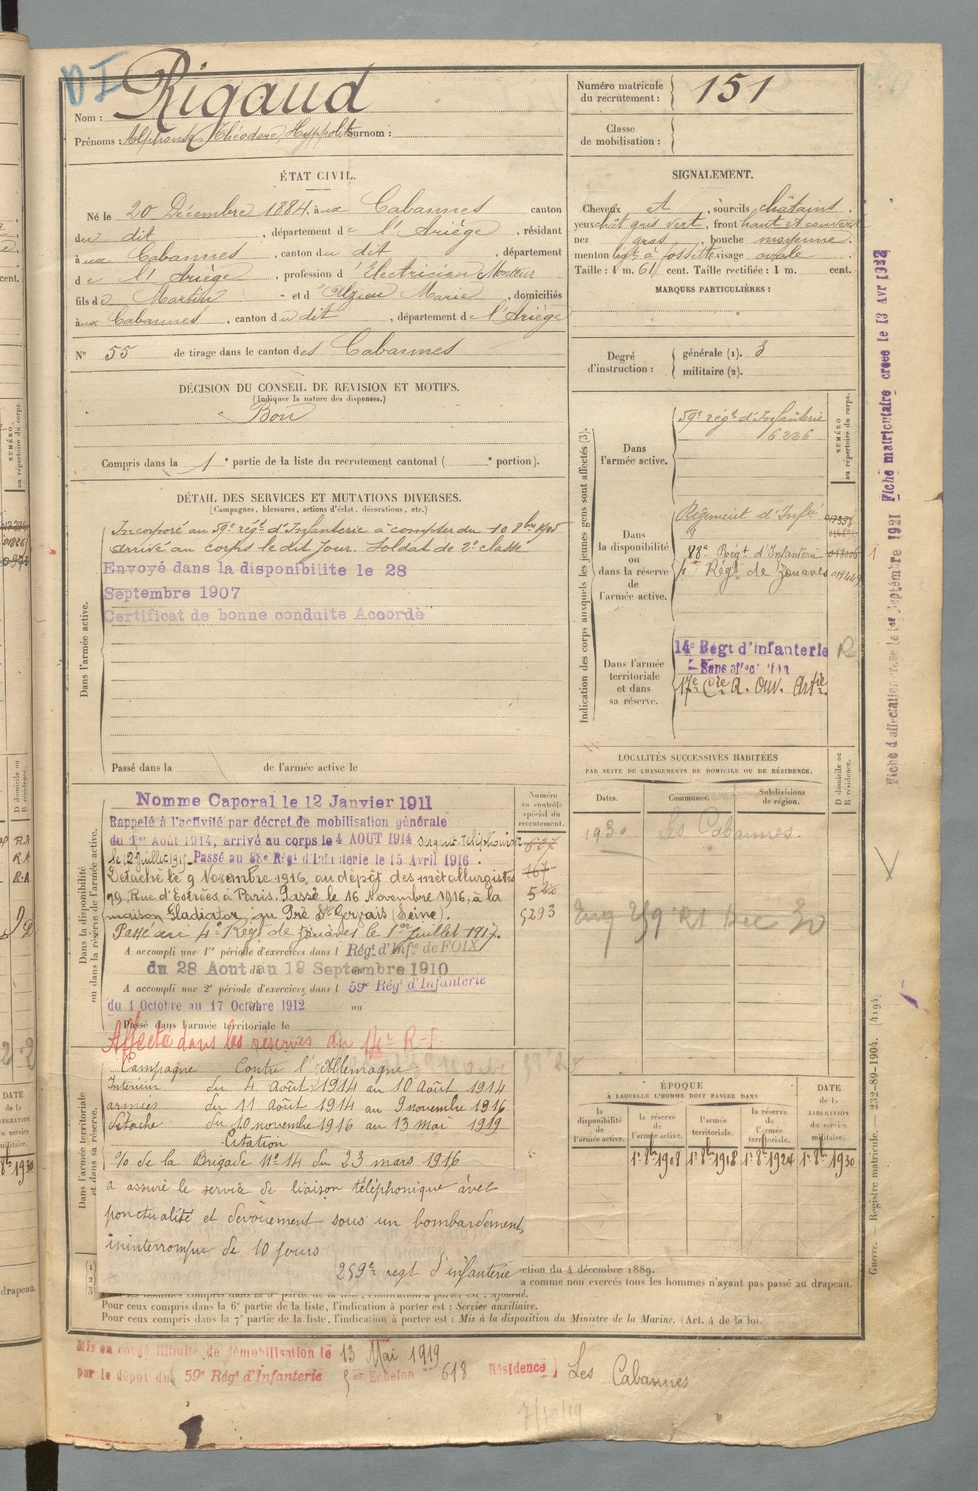 Rigaud
Nom :
Prénoms : Alphonse, Théodore, Hyppolite Surnom :
Numéro matricule du recrutement : 151
Classe de mobilisation :
ÉTAT CIVIL.
Né le 20 Décembre 1884, aux Cabannes canton
du dit, département de l'Ariège, résidant
aux Cabannes, canton du dit, département
de l'Ariège, profession d'Electricien Monteur
fils de Martin et d' Marie, domiciliés
aux Cabannes, canton du dit, département de l'Ariège
N° 55 de tirage dans le canton des Cabannes
SIGNALEMENT.
Cheveux et, sourcils châtains.
yeux gris vert, front haut et
nez gros, bouche moyenne.
menton à fossette visage ovale
Taille : 1 m. 61 cent. Taille rectifiée : 1 m. cent.
MARQUES PARTICULIÈRES :
Degré d'instruction : générale (1). 3
militaire (2).
DÉCISION DU CONSEIL DE REVISION ET MOTIFS.
(Indiquer la nature des dispenses.)
Bon
Compris dans la 1e partie de la liste du recrutement cantonal ( e portion).
DÉTAIL DES SERVICES ET MUTATIONS DIVERSES.
(Campagnes, blessures, actions d'éclat, décorations, etc.)
Dans l'armée active.
Incorporé au 59e régt d'Infanterie à compter du 10 8bre 1905
arrivé au corps le dit jour. Soldat de 2e classe
Envoyé dans la disponibilite le 28
Septembre 1907
Certificat de bonne conduite Accordé
Passé dans la de l'armée active le
Indication des corps auxquels les jeunes gens sont affectés (3).
NUMÉRO au répertoire du corps.
Dans l'armée active.
59e régt d'Infanterie
6226
Dans la disponibilité ou dans la réserve de l'armée active.
Régiment d'Infie
88e Régt d'Infanterie
4e Régt de Zouaves
Dans l'armée territoriale et dans sa réserve.
14e Régt d'Infanterie R
Sans affectation
17e Cie R. Ouv. Artie.
LOCALITÉS SUCCESSIVES HABITÉES
PAR SUITE DE CHANGEMENTS DE DOMICILE OU DE RÉSIDENCE.
Dates. Communes. Subdivisions de région. D domicile ou R résidence.
1930 Les Cabannes.
Dans la disponibilité ou dans la réserve de l'armée active.
Numéro au contrôle spécial du recrutement.
Nomme Caporal le 12 Janvier 1911
Rappelé à l'activité par décret de mobilisation générale
du 1er Août 1914, arrivé au corps le 4 AOUT 1914
le 12 Juillet 1915 Passé au 88e Régt d'Infanterie le 15 Avril 1916.
Détaché le 9 Novembre 1916, au dépôt des métallurgistes
99, Rue d'Estrées à Paris. Passé le 16 Novembre 1916, à la
maison Gladiator, au Pré St Gervais (Seine).
Passé au 4e Régt de Zouaves le 1er Juillet 1917.
5293
A accompli une 1re période d'exercices dans l Régt d'Infie de FOIX
du 28 Aout au 19 Septembre 1910
A accompli une 2e période d'exercices dans l 59e Régt d'Infanterie
du 1 Octobre au 17 Octobre 1912
Passé dans l'armée territoriale le
Affecté dans les réserves au 14e R.I.
Dans l'armée territoriale et dans sa réserve.
Campagne Contre l'Allemagne
Intérieur du 4 Août 1914 au 10 Août 1914
armées du 11 Août 1914 au 9 novembre 1916
détaché du 10 novembre 1916 au 13 mai 1919
Citation
O/o de la Brigade N° 14 du 23 mars 1916
a assuré le service de liaison téléphonique avec
ponctualité et dévouement sous un bombardement
ininterrompu de 10 jours
259e regt d'infanterie
ÉPOQUE
À LAQUELLE L'HOMME DOIT PASSER DANS
la disponibilité de l'armée active. la réserve de l'armée active. l'armée territoriale. la réserve de l'armée territoriale. DATE de la LIBÉRATION du service militaire.
1er 8bre 1908 1er 8bre 1918 1er 8bre 1924 1er 8bre 1930
ction du 4 décembre 1889.
a comme non exercés tous les hommes n'ayant pas passé au drapeau.
Pour ceux compris dans la 6e partie de la liste, l'indication à porter est : Service auxiliaire.
Pour ceux compris dans la 7e partie de la liste, l'indication à porter est : Mis à la disposition du Ministre de la Marine. (Art. 4 de la loi.
Mis en congé illimité de démobilisation le 13 Mai 1919
par le dépôt du 59e Régt d'Infanterie Echelon 618 Résidence } Les Cabannes
Fiche matriculaire créée le 13 Avr
Guerre. — Registre matricule. — 232-89-1904. [4194.